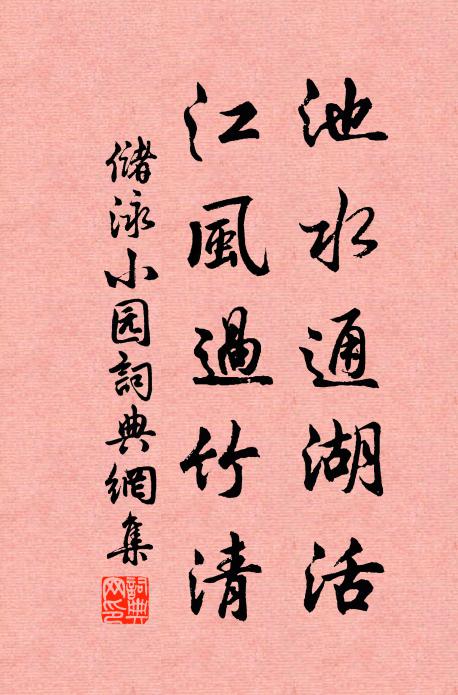 池水通湖活
江風過竹清
儲泳小园詞典網集
詞典网印